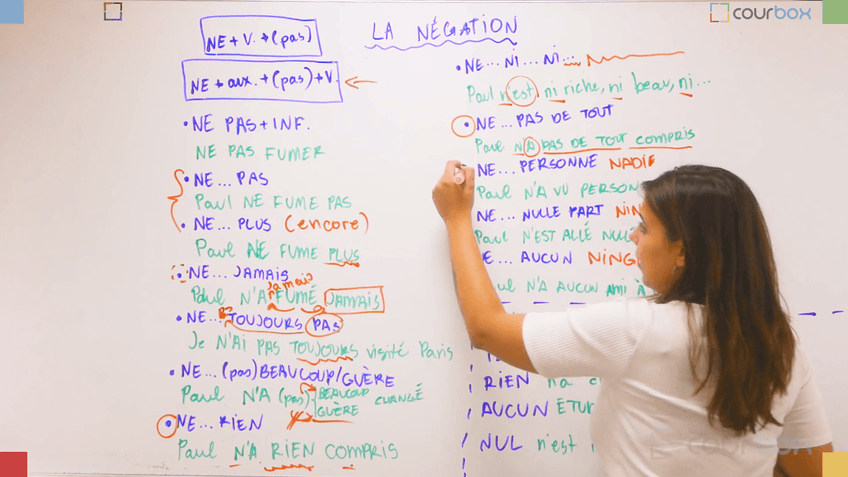 courbox
LA NÉGATION
NE + V. + (pas)
NE + aux. + (pas) + V.
• NE PAS + INF.
NE PAS FUMER
• NE... PAS
Paul NE FUME PAS
• NE... PLUS (encore)
Paul NE FUME PLUS
• NE... JAMAIS
jamais
Paul N'A FUMÉ JAMAIS
• NE... TOUJOURS PAS
Je N'AI PAS TOUJOURS visité Paris
• NE... (pas) BEAUCOUP/GUÈRE
Paul N'A (pas) BEAUCOUP CHANGÉ
GUÈRE
• NE... RIEN
Paul N'A RIEN COMPRIS
• NE... NI... NI...
Paul n'est ni riche, ni beau, ni...
• NE... PAS DE TOUT
Paul N'A PAS DE TOUT COMPRIS
NE... PERSONNE NADIE
Paul N'A VU
NE... NULLE PART
Paul N'EST ALLÉ
... AUCUN
N'A AUCUN AMI À
RIEN n'a
AUCUN
NUL n'est
courbox